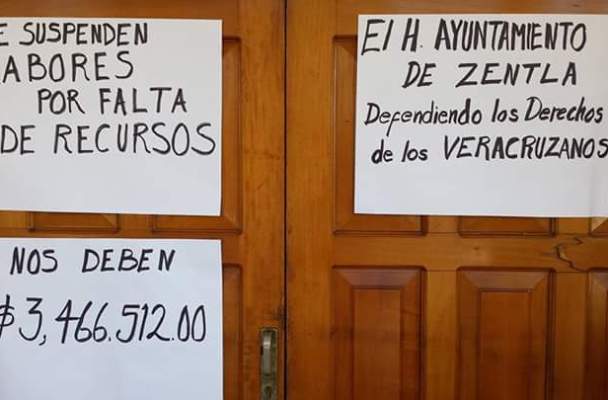 E SUSPENDEN
ABORES
POR FALTA
DE RECURSOS
NOS DEBEN
$3,466.512.00
El H. AYUNTAMIENTO
DE ZENTLA
Defendiendo los Derechos
de los VERACRUZANOS